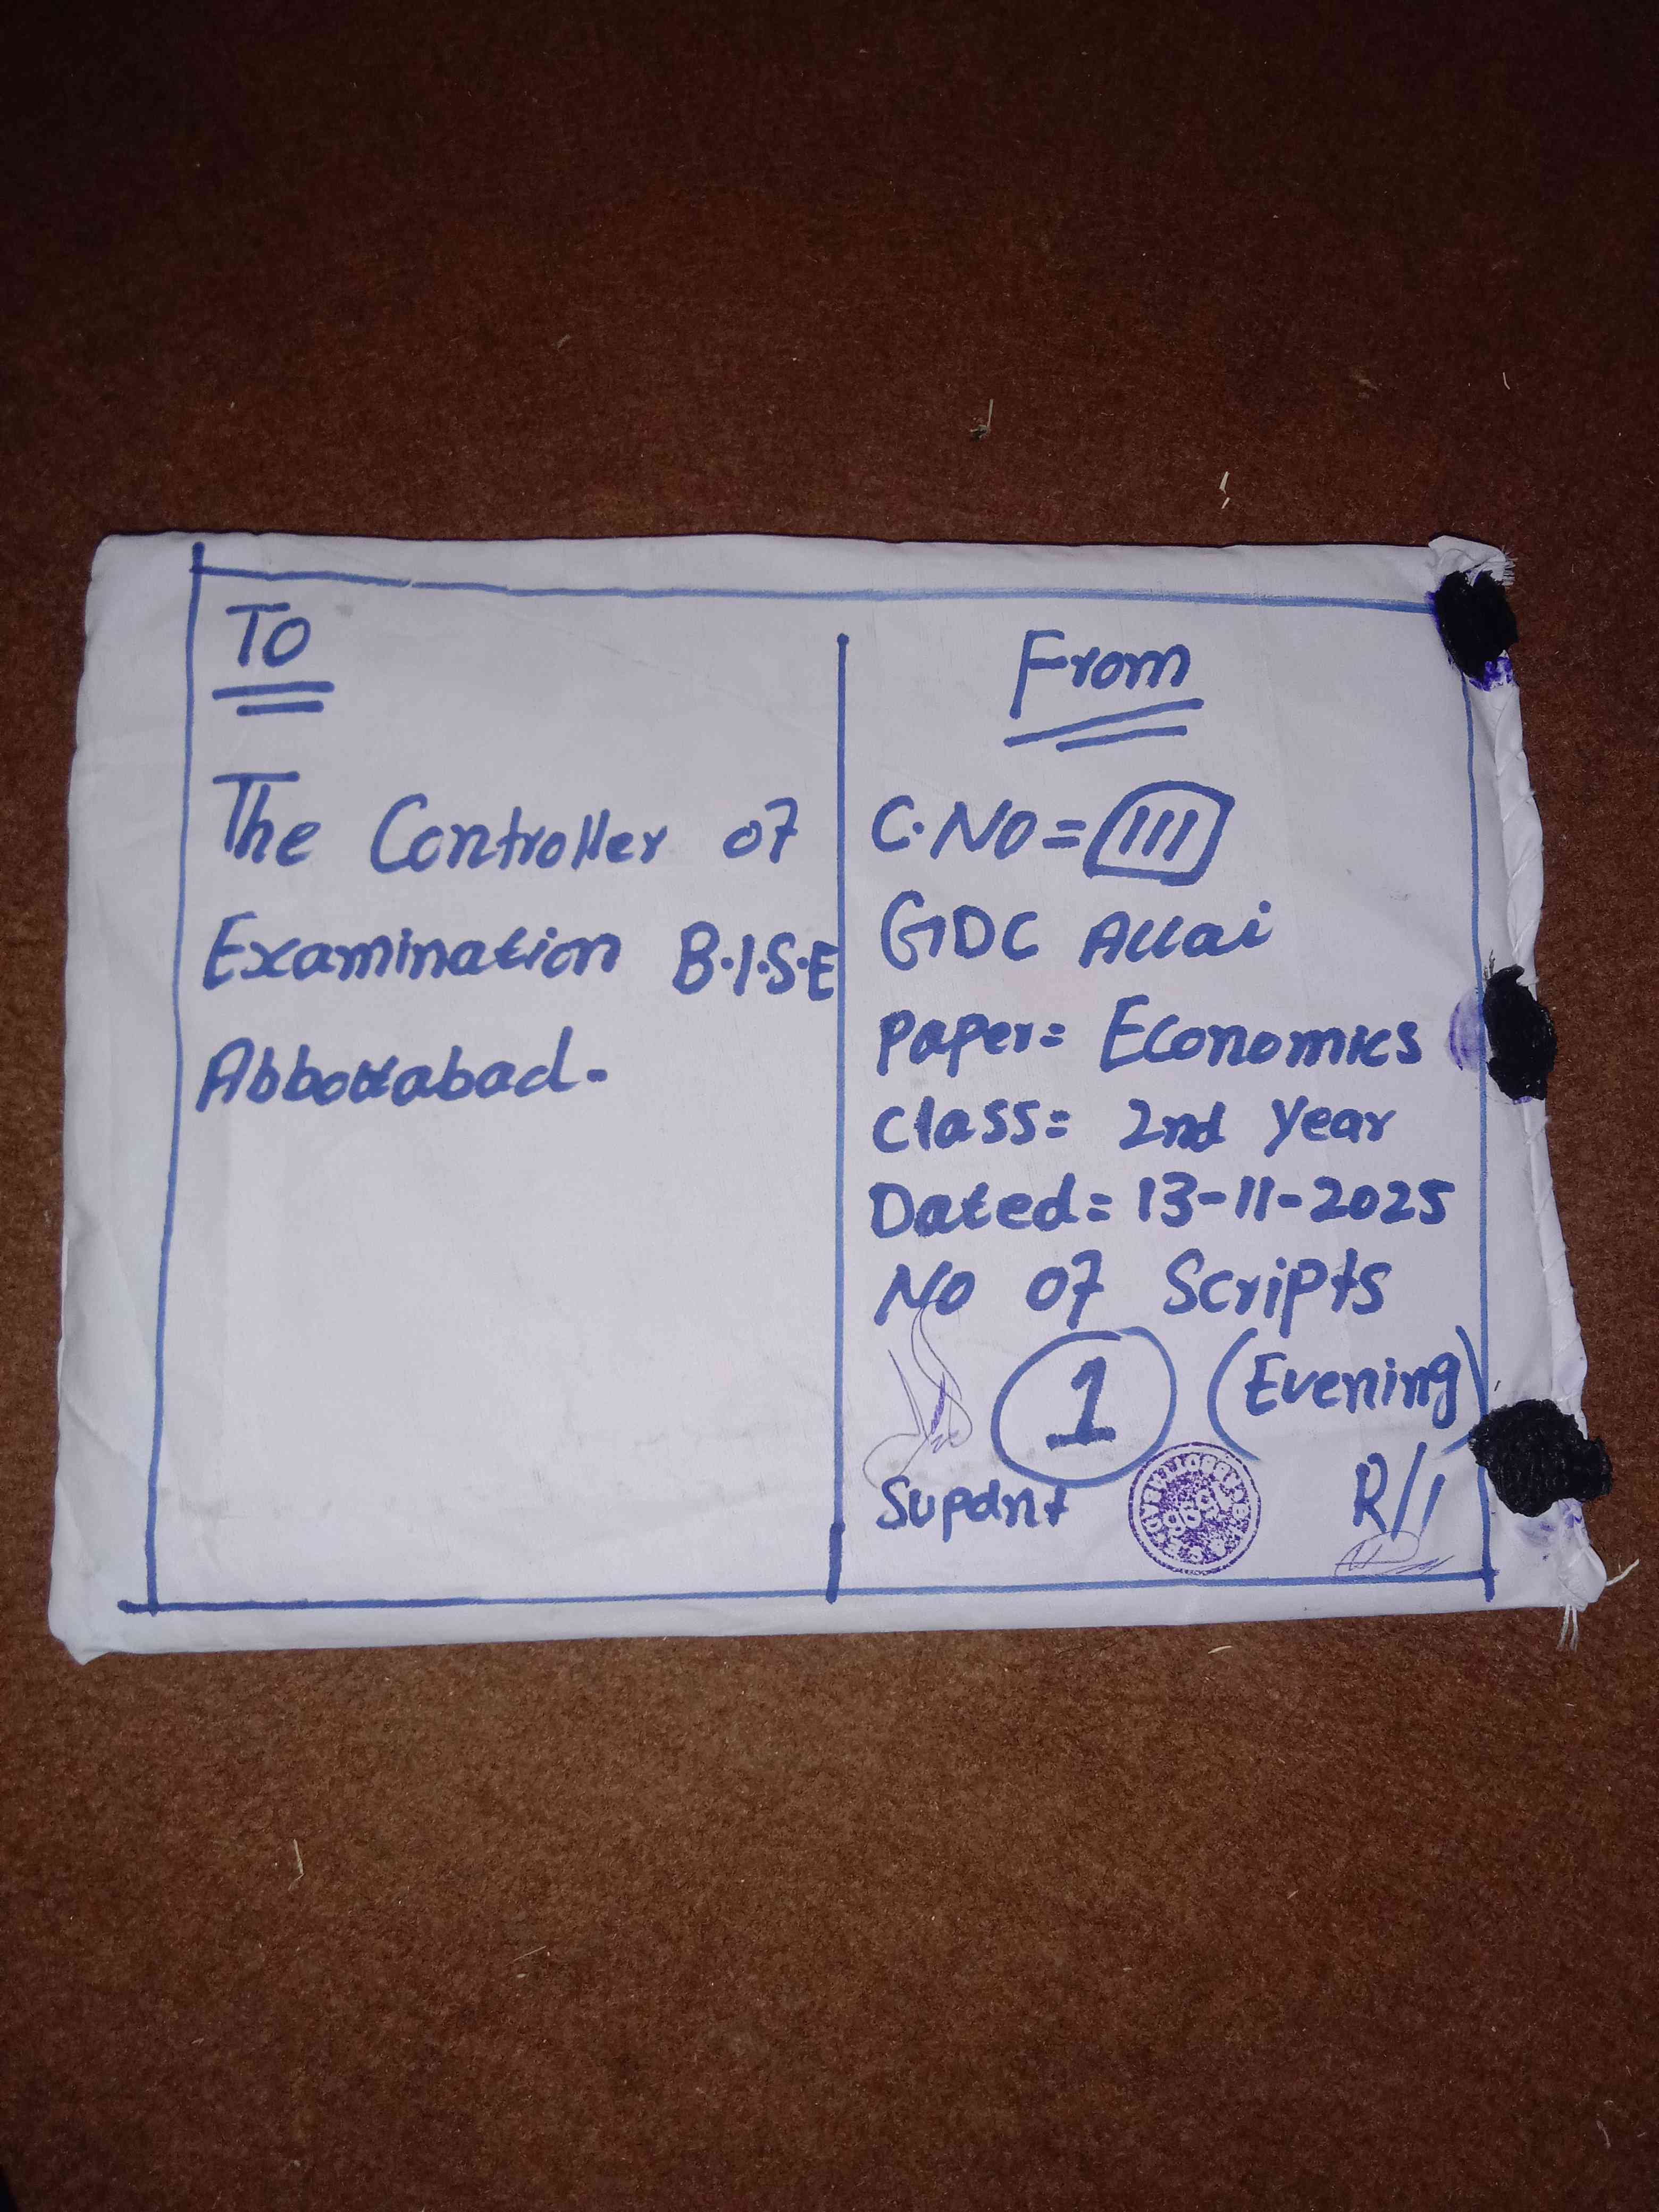 To
The Controller of
Examination B.I.S.E
Abbottabad.
From
C.No = 111
GDC Allai
Paper = Economics
Class = 2nd Year
Dated = 13-11-2025
No of Scripts
1 (Evening)
Supdnt
R/I